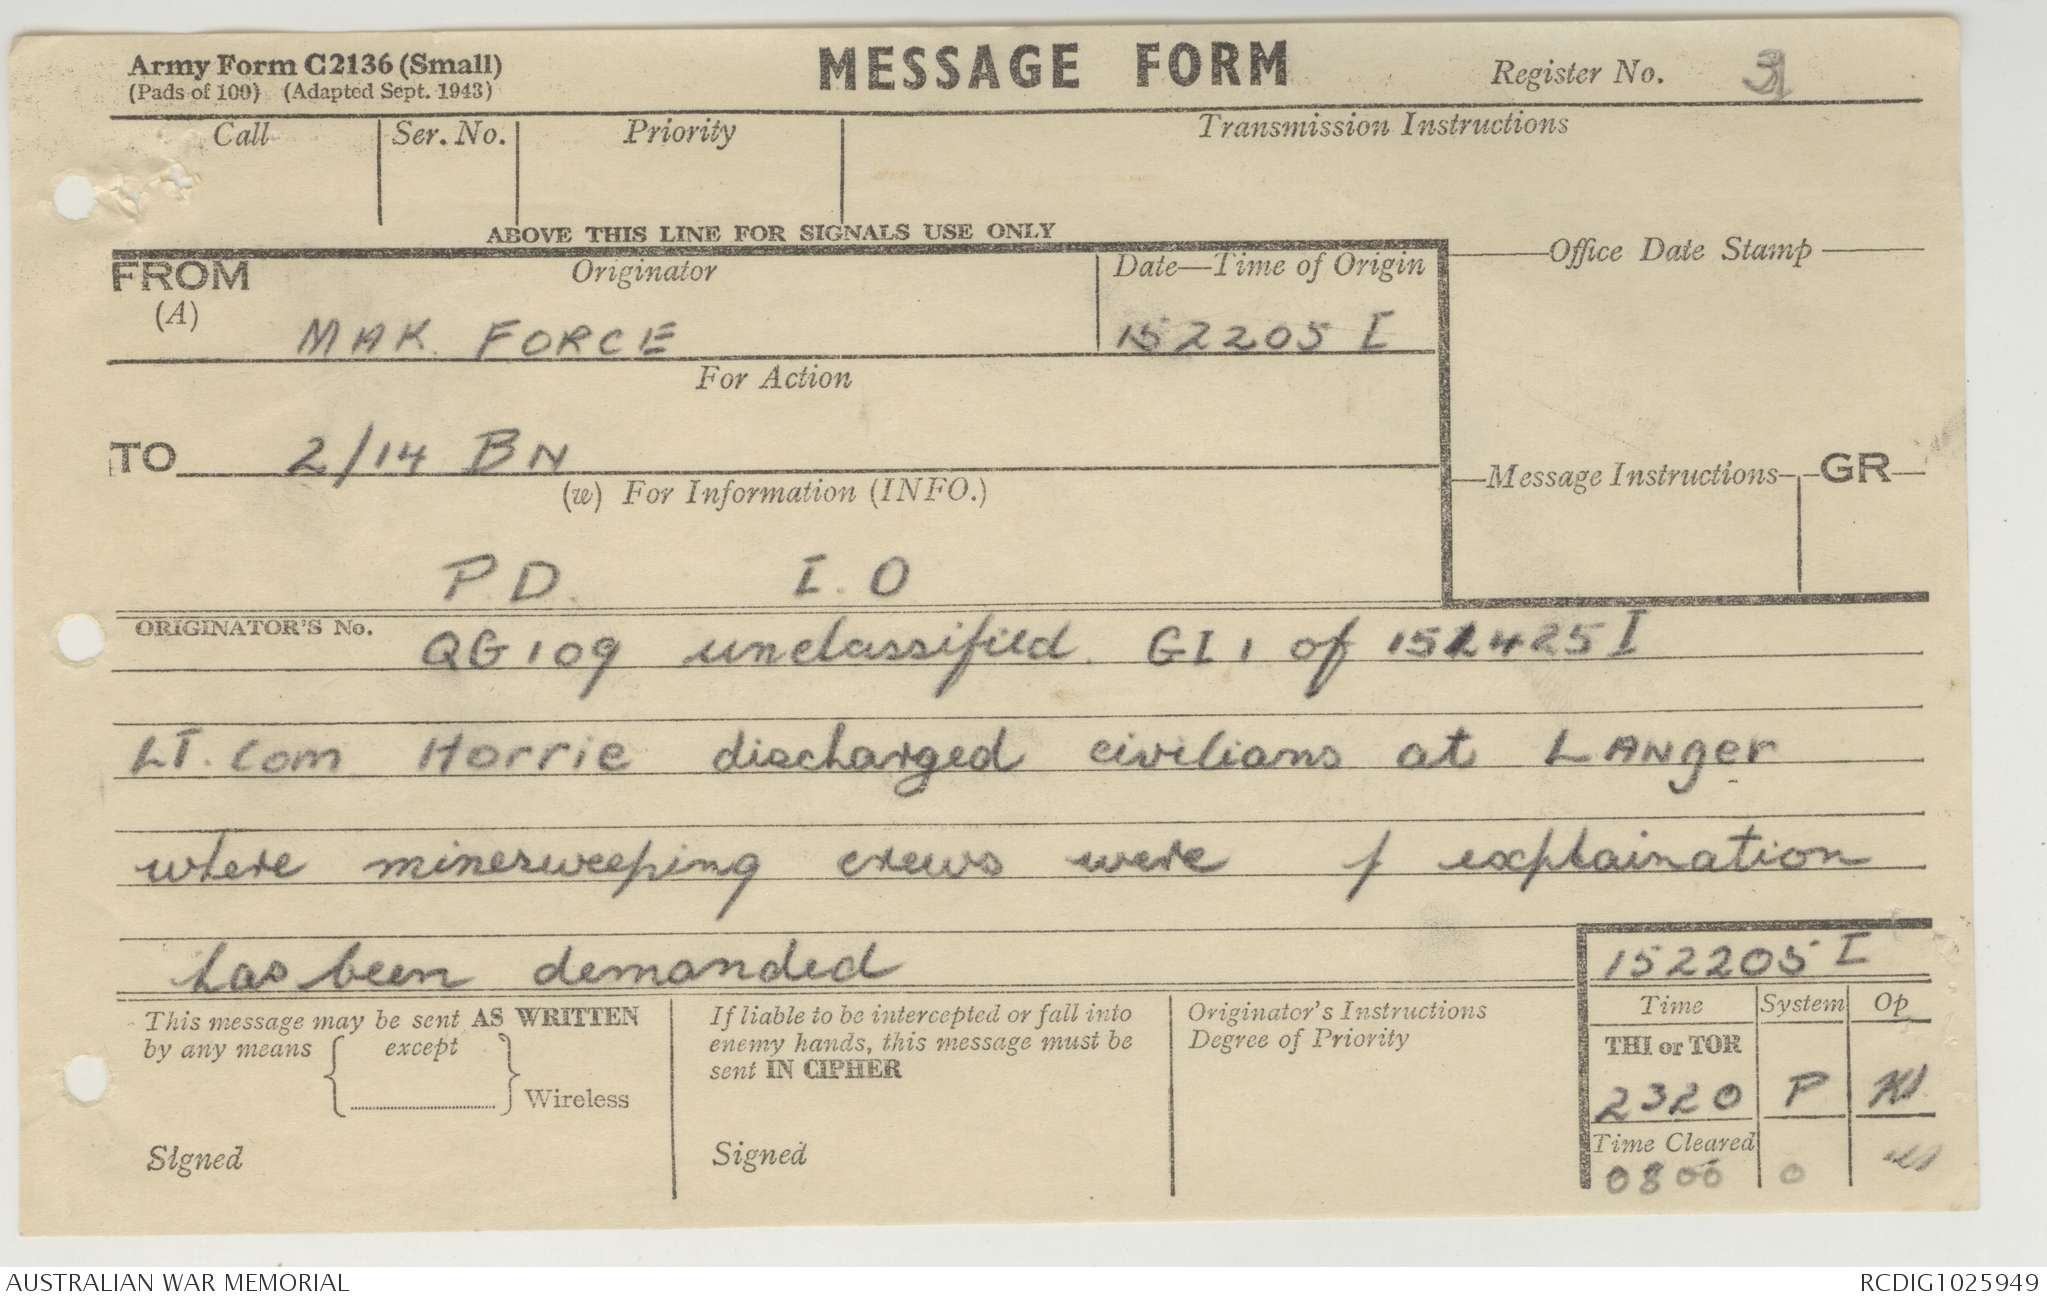 Army Form C2136 (Small)
(Pads of 100) (Adapted Sept. 1943)
MESSAGE FORM
Register No.
Call
Ser. No.
Priority
Transmission Instructions
ABOVE THIS LINE FOR SIGNALS USE ONLY
FROM
(A)
Originator
MAK FORCE
Date—Time of Origin
152205 I
Office Date Stamp
For Action
TO
2/14 BN
(w) For Information (INFO.)
Message Instructions
GR
P.D. I.O
ORIGINATOR'S No.
QG109 unclassified. GI 1 of 152425 I
LT. Com Horrie discharged civilians at LANger
where minesweeping crews were / explaination
has been demanded
152205 I
This message may be sent AS WRITTEN
by any means except
Wireless
Signed
If liable to be intercepted or fall into
enemy hands, this message must be
sent IN CIPHER
Signed
Originator's Instructions
Degree of Priority
Time System Op
THI or TOR
2320 P
Time Cleared
0800 O
AUSTRALIAN WAR MEMORIAL
RCDIG1025949